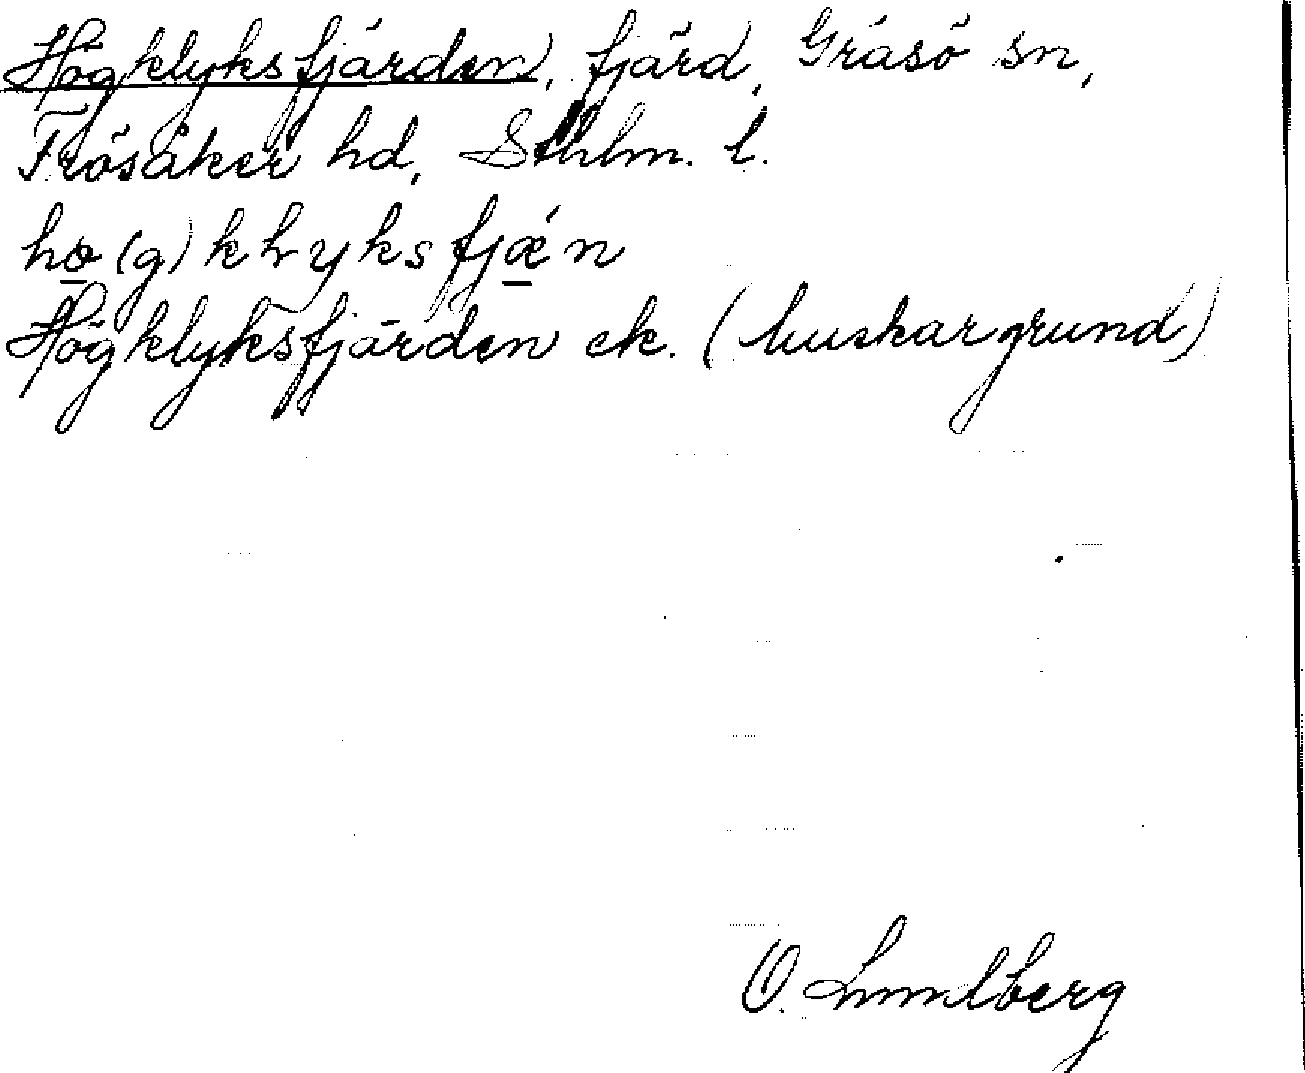 Högklyksfjärden, fjärd, Gräsö sn,
Frösåker hd, Sthlm. l.
Högklyksfjärden ek. (buskargrund)
O. Lundberg